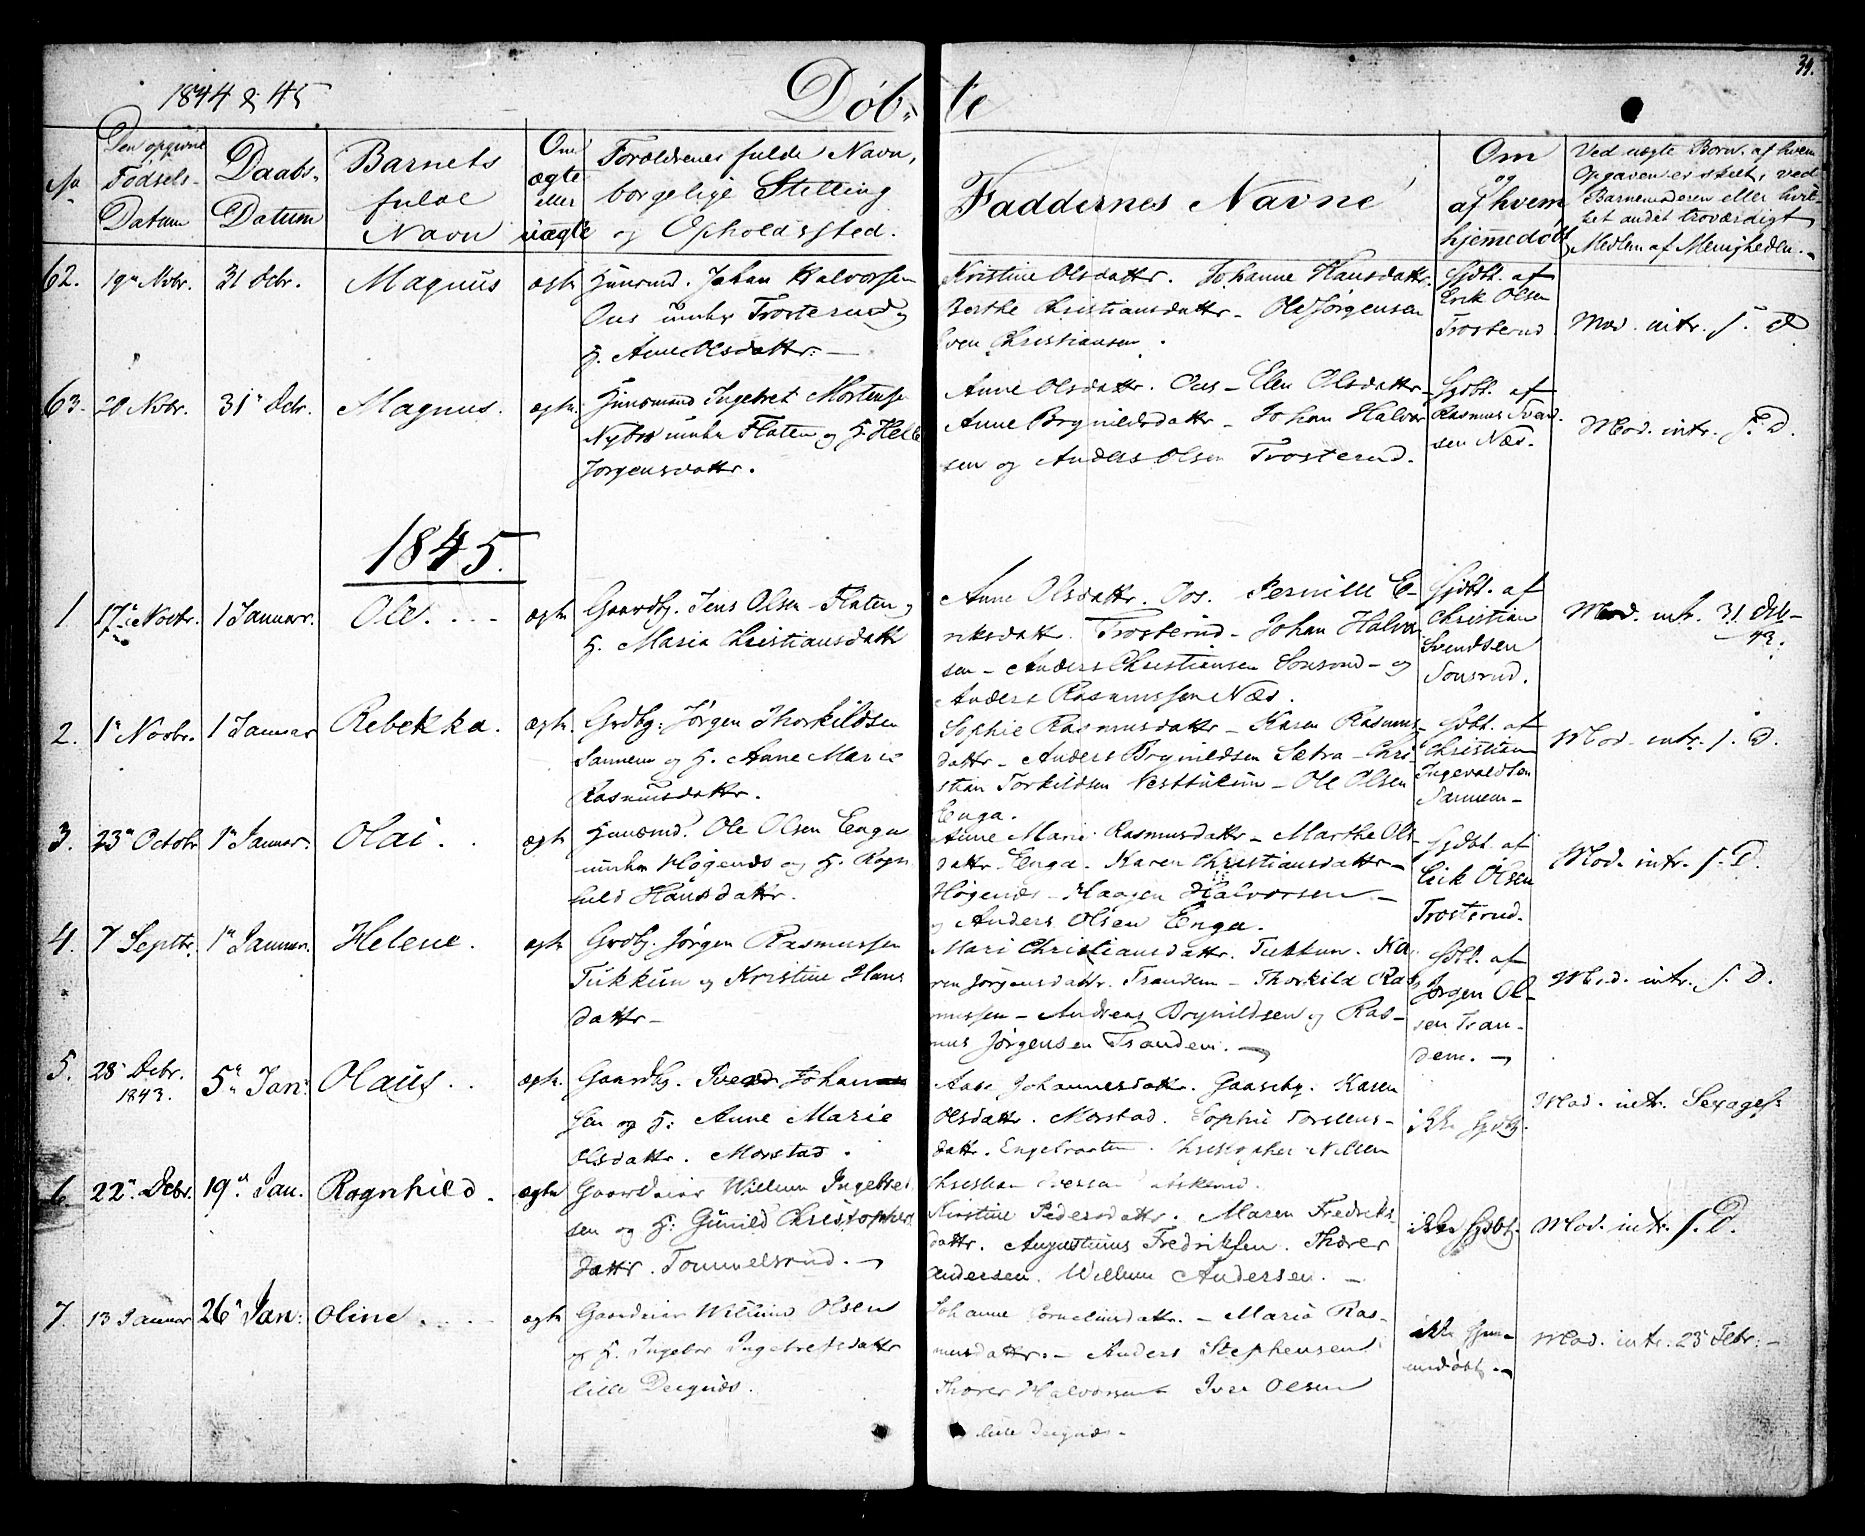 34.
1844 & 45
Døb- te
No
Den opgivne
Fødsels-
Datum
Daabs-
Datum
Barnets
fulde
Navn
Om
ægte
eller
uægte
Forældrenes fulde Navn,
borgelige Stilling
og Opholdssted.
Faddernes Navne
Om
og
af hvem
hjemedøbt
Ved uægte Born. af hvem
Opgaven er skeet, ved
Barnemoderen eller hvil-
ket andet troværdigt
Medlem af Menigheden.
62. 19de Novbr. 31 Dcbr. Magnus ægte
Huusmd. Johan Halvorsen
Ous under Trosterud og
H. Anne Olsdattr.
Kristine Olsdattr. Johanne Hansdattr.
Berthe Christiansdattr - Ole Jørgensen
Sven Christiansen.
Hjdbt. af
Erik Olsen
Trosterud
Mod. intr. s. D.
63. 20 Novbr. 31 Dcbr. Magnus. ægte
Huusmand Ingebret Mortense
Nybro under Flaten og H. Helle
Jorgensdattr.
Anne Olsdattr. Ous - Elen Olsdattr
Anne Brynildsdattr - Johan Halvor
sen og Anders Olsen Trosterud.
Hjdbt. af
Rasmus Svend
sen Næs.
Mod. intr. s. D.
1845.
1 17de Novbr. 1 Januar. Ole. ægte
Gaardbg. Jens Olsen Flaten og
H. Maria Christiansdattr
Anne Olsdattr. Oos. Pernille E-
riksdattr. Trosterud - Johan Halvor
sen - Anders Christiansen Sonsrud - og
Anders Rasmussen Næs.
Hjdbt. af
Christian
Svendsen
Sonsrud.
Mod. intr. 31 Dcb-
43.
2. 1 Novbr. 1 Januar Rebekka. ægte.
Grdbg. Jørgen Thorkildsen
Sannem og H. Anne Marie
Rasmusdattr.
Sophie Rasmusdattr - Karen Rasmus
dattr - Anders Brynildsen Sætra - Chri-
stian Torkildsen Vesttulun - Ole Olsen
Enga.
Hjdbt. af
Christian
Ingevaldsen
Sannem-
Mod. intr. s. D.
3. 23 Octobr 1 Januar. Olai. ægte
Huusmd. Ole Olsen Enga
under Høgenæs og H. Ragn
hild Hansdattr.
Anne Marie Rasmusdattr - Marthe Ols-
dattr Enga. Karen Christiansdattr -
Høgenæs - Haagen Halvorsen -
og Anders Olsen Enga.
Hjdbt. af
Erik Olsen
Trosterud.
Mod. intr. s. D.
4. 7 Septbr. 1 Januar. Helene. ægte
Grdbg. Jørgen Rasmussen
Tukkun og Kristine Hans
dattr -
Mari Christiansdattr. Tukkun. Ka
ren Jørgensdattr. Trandem - Thorkild Ras
mussen - Andreas Brynildsen og Ras-
mus Jørgensen Trandem.
Hjdbt. af
Jørgen Ol-
sen Tran-
dem.
Mod. intr. s. D.
5. 28 Dcbr. 1843. 5 Jan: Olaus. ægte.
Gaardbg. Svend Johan
sen og H: Anne Marie
Olsdattr. Morstad.
Aase Johannesdattr. Gaaseby. Karen
Olsdattr. Morstad. Sophie Torstens-
dattr. Engebraaten. Christopher Nilsen
Christian
ikke Hjdbt.
Mod. intr. Sexages:
6. 22 Dcbr. 19 Jan. Ragnhild. ægte
Gaardeier Willum Ingebret
sen og H: Gunild Christopher
dattr. Tommelsrud.
Kirstine Pedersdattr. Maren Fredriks-
dattr. Augustinus Fredriksen. Thorer
Andersen. Willum Andersen.
ikke Hjdbt.
Mod. intr. s. D.
7. 13 Januar 26 Jan: Oline. ægte
Gaardeier Willum Olsen
og H. Ingebor Ingebretsdattr
lille Degnæs.
Johanne Corneliusdattr. - Maria Ras-
musdattr. - Anders Stephensen
Thorer Halvorsen - Iver Olsen
lille Degnæs -
ikke Hjem-
medøbt.
Mod. intr. 23 Febr: